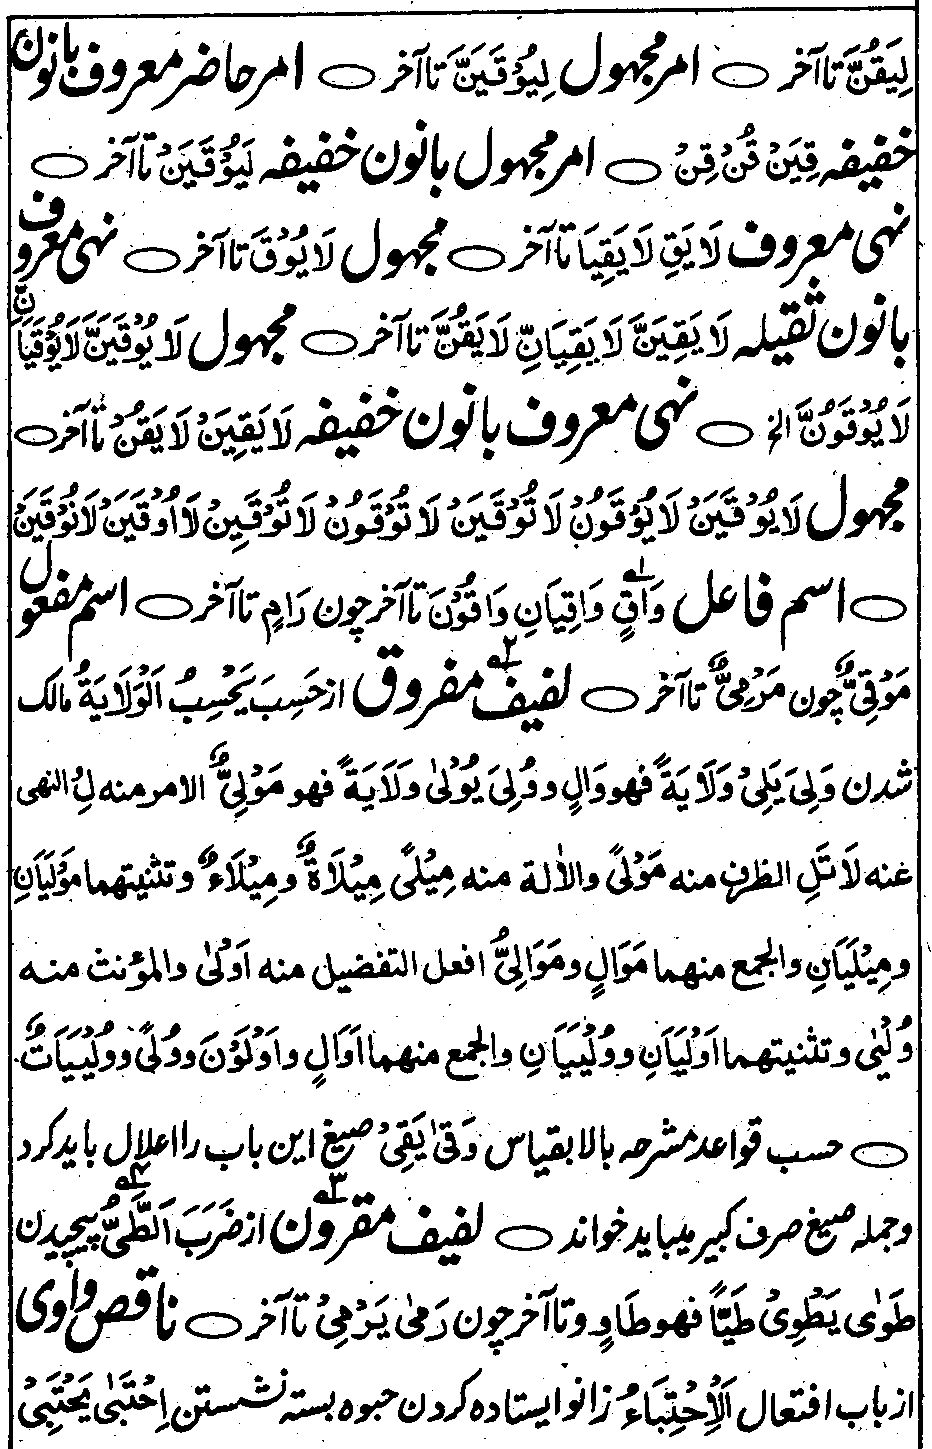 لِيَقُنَّ تا آخر ○ امر مجهول لِيُوْقَيَنَّ تا آخر ○ امر حاضر معروف بانون
خفیفہ قِيَنْ قُنْ قِنْ ○ امر مجهول بانون خفیفہ لِيُوْقَيَنْ تا آخر ○
نہی معروف لَا يَقِ لَا يَقِيَا تا آخر ○ مجهول لَا يُوْقَ تا آخر ○ نہی معروف
بانون ثقیلہ لَا يَقِيَنَّ لَا يَقِيَانِّ لَا يَقُنَّ تا آخر ○ مجهول لَا يُوْقَيَنَّ لَا يُوْقَيَانِّ
لَا يُوْقَوُنَّ الخ ○ نہی معروف بانون خفیفہ لَا يَقِيَنْ لَا يَقُنْ تا آخر ○
مجهول لَا يُوْقَيَنْ لَا يُوْقَوُنْ لَا تُوْقَيَنْ لَا تُوْقَوُنْ لَا تُوْقَيِنْ لَا اُوْقَيَنْ لَا نُوْقَيَنْ
○ اسم فاعل وَاقٍ وَاقِيَانِ وَاقُوْنَ تا آخر چون رَامٍ تا آخر ○ اسم مفعول
مَوْقِيٌّ چون مَرْمِيٌّ تا آخر ○ لفیف مفروق از حَسِبَ يَحْسِبُ اَلْوَلَايَةُ مالک
شدن وَلِيَ يَلِيْ وَلَايَةً فهو وَالٍ و وُلِيَ يُوْلىٰ وَلَايَةً فهو مَوْلِيٌّ الامر منه لِ النهى
عنه لَا تَلِ الظرف منه مَوْلًى والاٰلة منه مِيْلًى مِيْلَاةٌ و مِيْلَاءٌ و تثنيتهما مَوْلَيَانِ
و مِيْلَيَانِ والجمع منهما مَوَالٍ و مَوَالِيُّ افعل التفضيل منه اَوْلىٰ والمؤنث منه
وُلْيٰى و تثنيتهما اَوْلَيَانِ و وُلْيَيَانِ والجمع منهما اَوَالٍ و اَوْلَوْنَ و وُلًى و وُلْيَيَاتٌ
○ حسب قواعد مشرحه بالا بقیاس وَقىٰ يَقِيْ صیغ این باب را اعلال باید کرد
و جمله صیغ صرف کبیر میباید خواند ○ لفیف مقرون از ضَرَبَ اَلطَّيُّ پیچیدن
طَوٰى يَطْوِيْ طَيًّا فهو طَاوٍ و تا آخر چون رَمىٰ يَرْمِيْ تا آخر ○ ناقص واوی
از باب افتعال اَلْاِحْتِبَاءُ زانو ایستاده کردن حبوه بسته نشستن اِحْتَبىٰ يَحْتَبِيْ